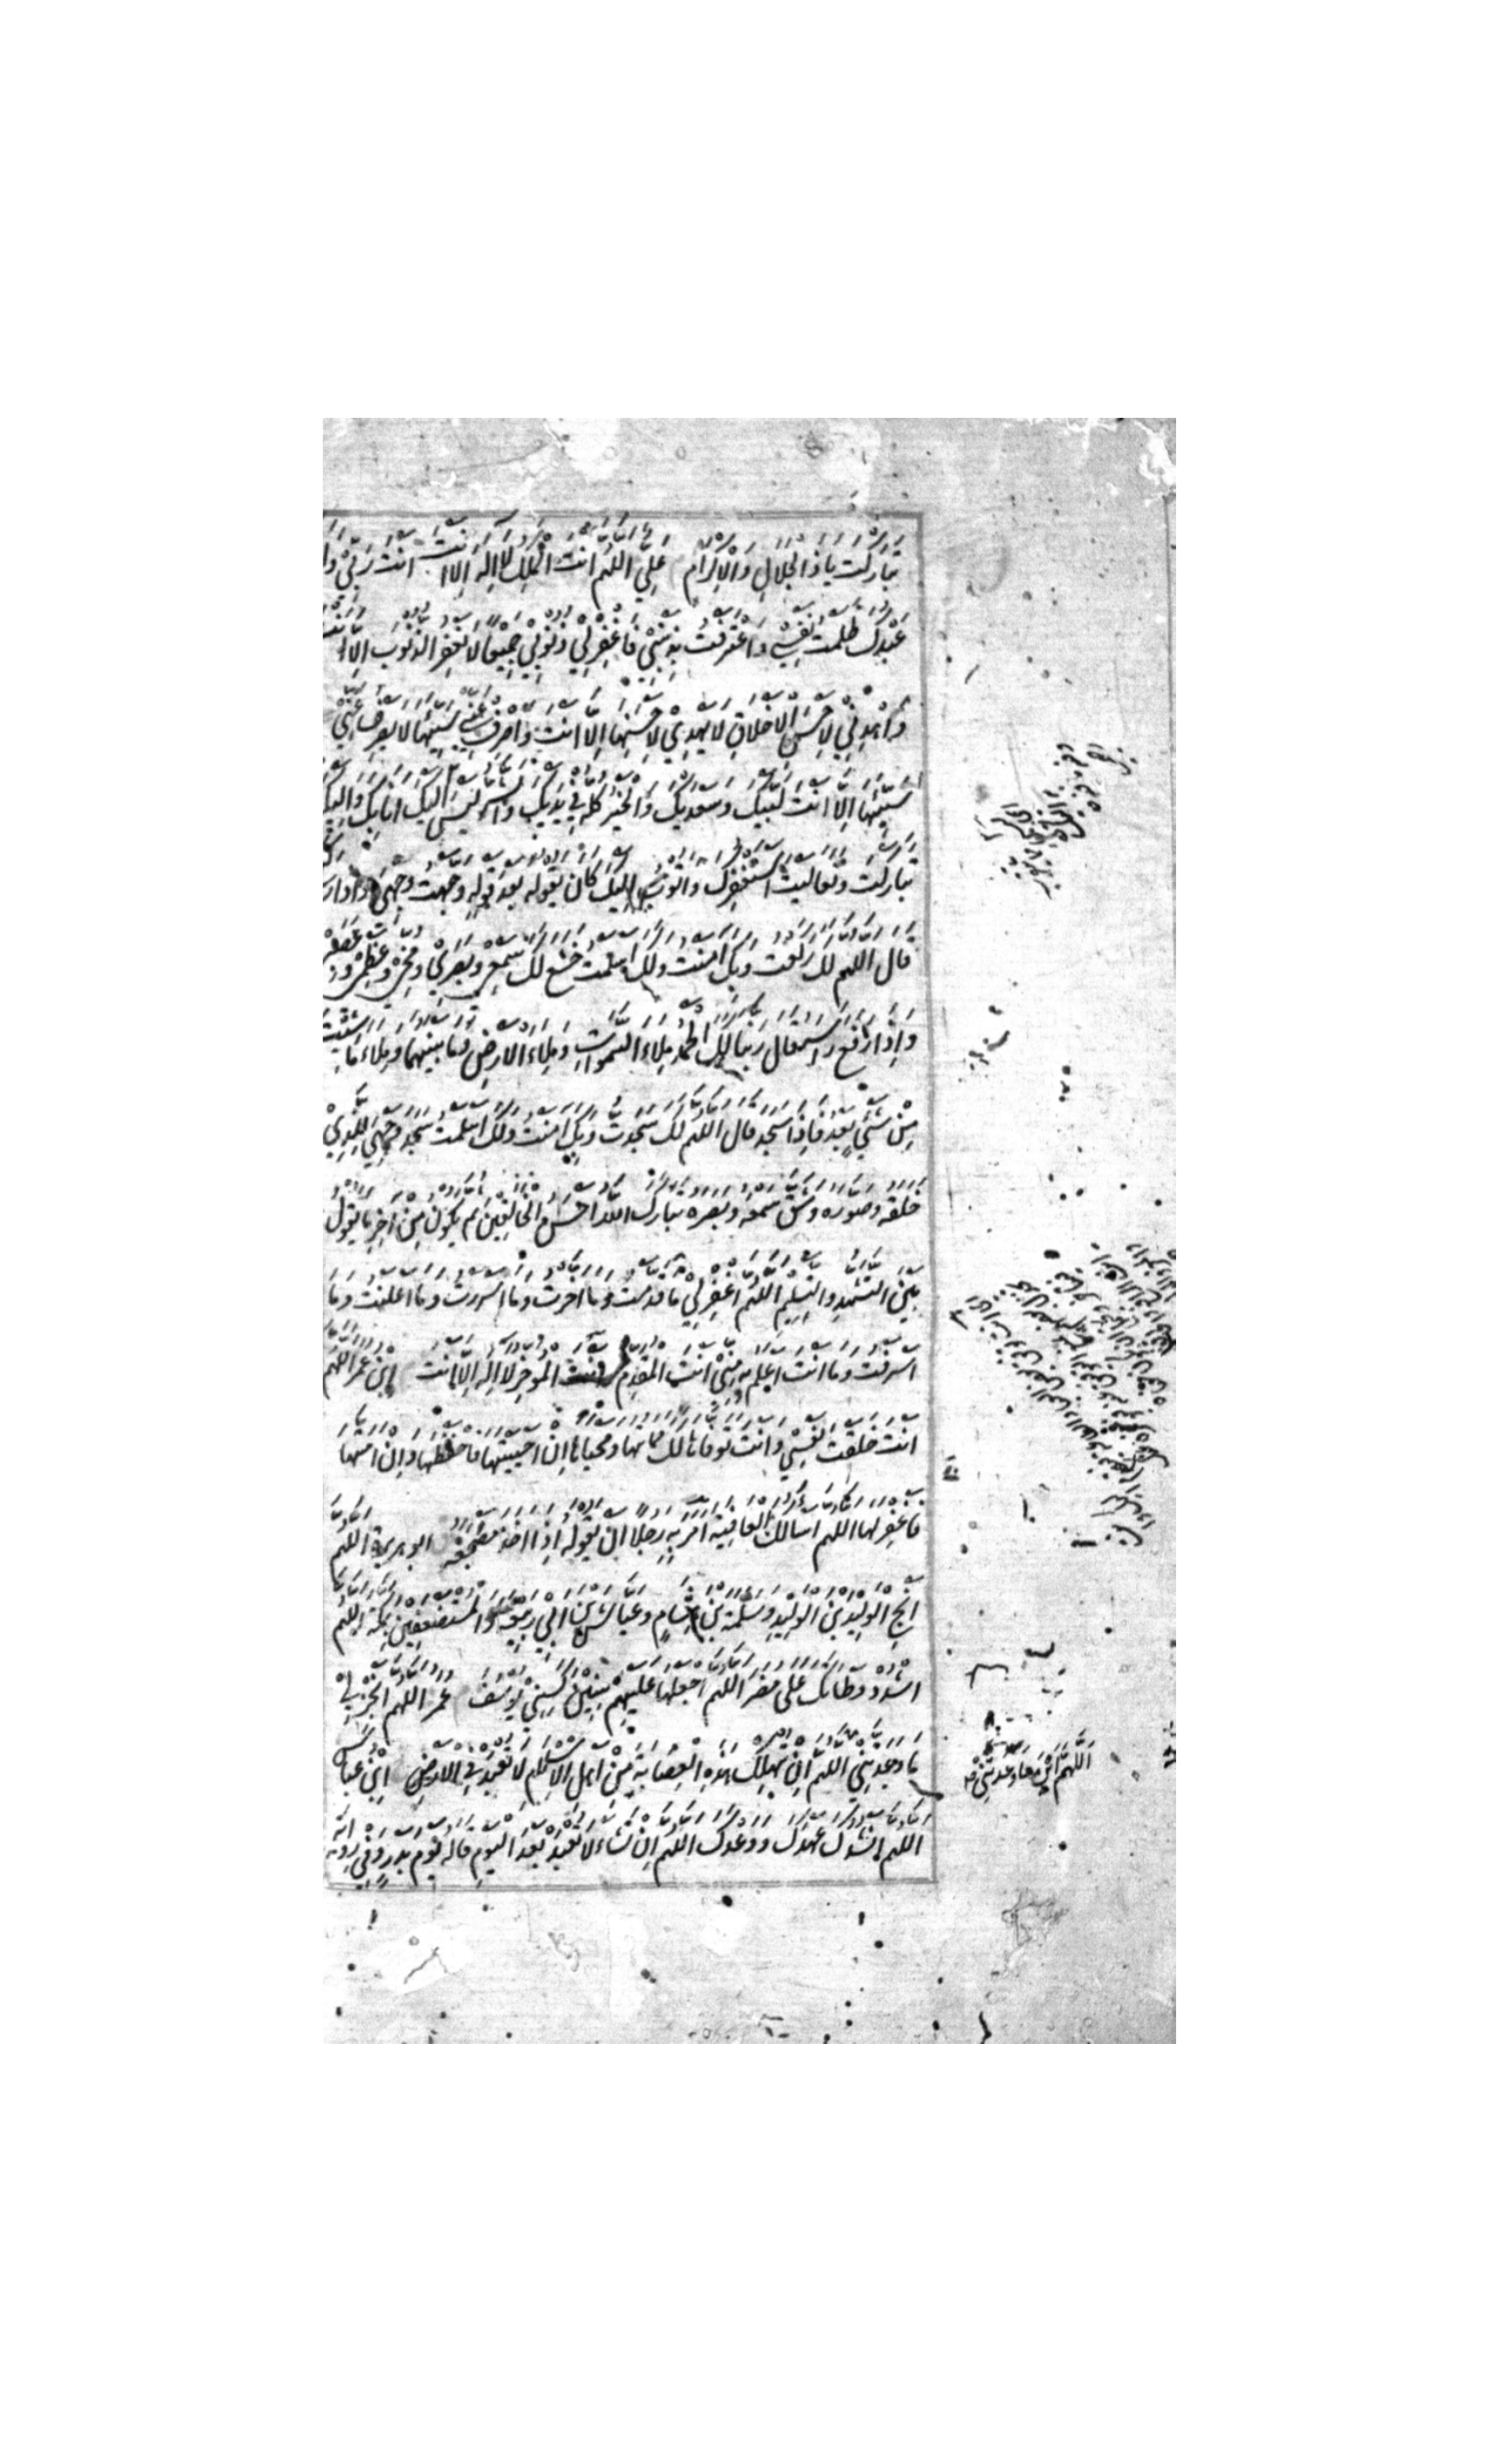 تباركت يا ذا الجلال والاكرام علي اللهم انت الملك لا اله الا انت انت ربي وانا
عبدك ظلمت نفسي واعترفت بذنبي فاغفر لي ذنوبي جميعا لا يغفر الذنوب الا انت
واهدني لاحسن الاخلاق لا يهدي لاحسنها الا انت واصرف عني سيئها لا يصرف عني
سيئها الا انت لبيك وسعديك والخير كله في يديك والشر ليس اليك انا بك واليك
تباركت وتعاليت استغفرك واتوب اليك كان يقوله بعد قوله وجهت وجهي
قال اللهم لك ركعت وبك امنت ولك اسلمت خشع لك سمعي وبصري ومخي وعظمي
واذا رفع راسه قال ربنا لك الحمد ملاء السموات وملاء الارض وما بينهما وملاء ما شئت
من شئ بعد فاذا سجد قال اللهم لك سجدت وبك امنت ولك اسلمت سجد وجهي للذي
خلقه وصوره وشق سمعه وبصره تبارك الله احسن الخالقين ثم يكون من اخر ما يقول
بين التشهد والتسليم اللهم اغفر لي ما قدمت وما اخرت وما اسررت وما اعلنت وما
اسرفت وما انت اعلم به مني انت المقدم وانت المؤخر لا اله الا انت ابن عمر اللهم
انت خلقت نفسي وانت توفاها لك مماتها ومحياها ان احييتها فاحفظها وان امتها
فاغفر لها اللهم اسالك العافية امر به رجلا ان يقوله اذا اخذ مضجعه ابو هريرة اللهم
انج الوليد بن الوليد وسلمة بن هشام وعياش بن ابي ربيعة والمستضعفين بمكة اللهم
اشدد وطاتك على مضر اللهم اجعلها عليهم سنين كسني يوسف عمر اللهم انجز لي
ما وعدتني اللهم ان تهلك هذه العصابة من اهل الاسلام لا تعبد في الارض ابن عباس
اللهم انشدك عهدك ووعدك اللهم ان تشاء لا تعبد بعد اليوم قاله يوم بدر وفي رواية
اللهم ات ما وعدتني